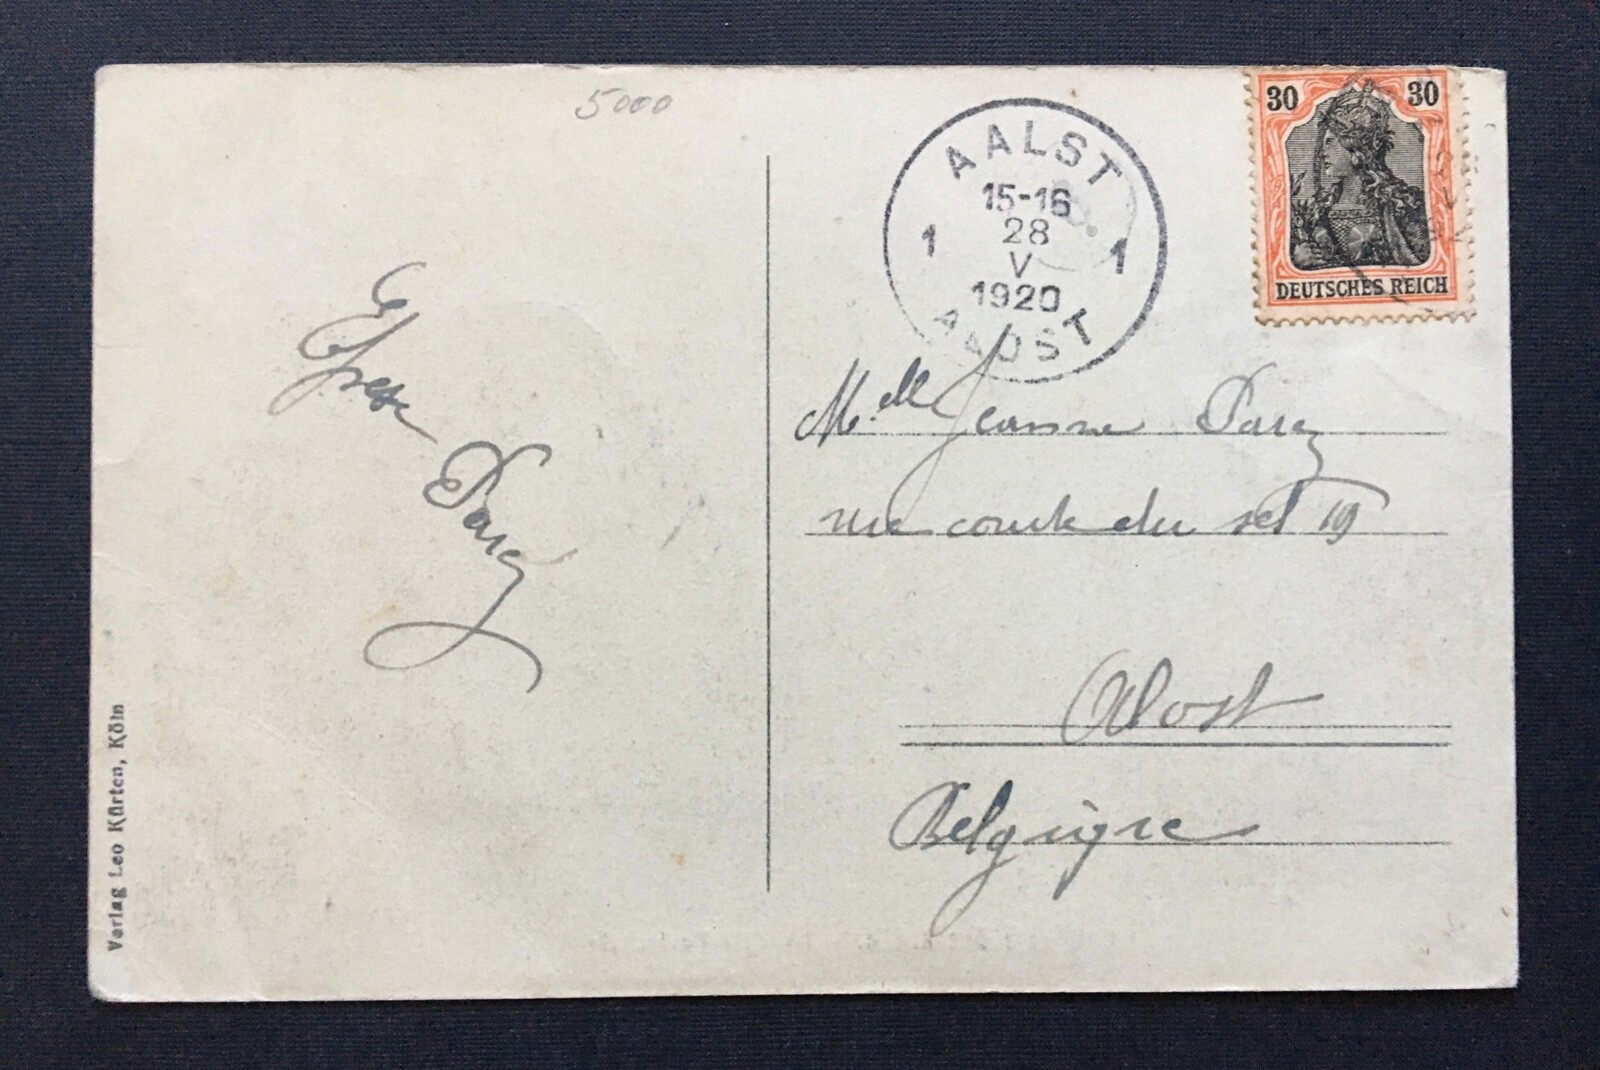 5000
AALST
15-16
28
V
1920
1 1
AALOST
30 30
DEUTSCHES REICH
Parez
Melle Jeanne Parez
rue courte du sel 19
Alost
Belgique
Verlag Leo Kürten, Köln